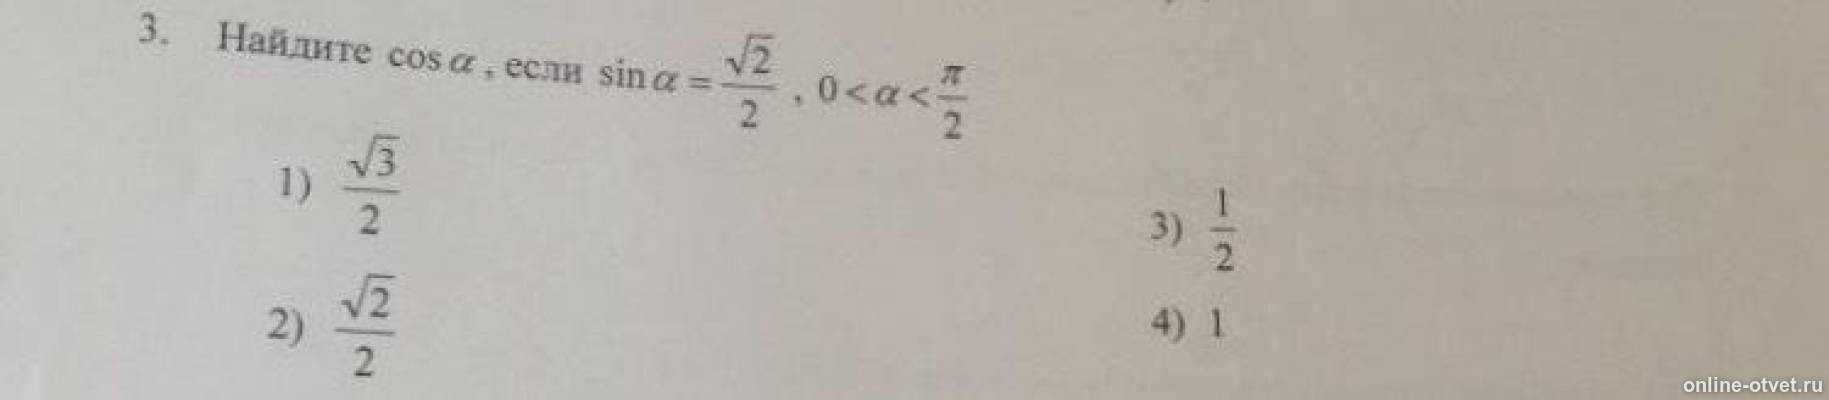 3. Найдите cos α, если sin α = √2/2, 0 < α < π/2
1) √3/2
2) √2/2
3) 1/2
4) 1
online-otvet.ru